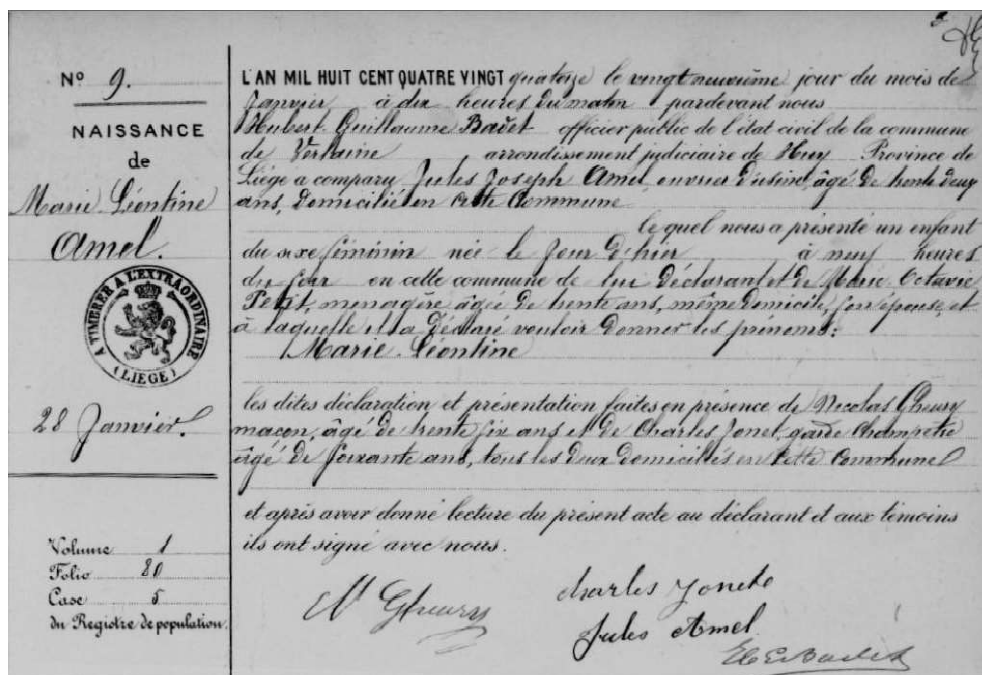 Nº 9.
NAISSANCE
de
Marie Léontine
Amel.
A TIMBRER A L'EXTRAORDINAIRE
(LIEGE)
28 Janvier.
Volume 1
Folio 80
Case 5
du Registre de population.
L'AN MIL HUIT CENT QUATRE VINGT quatorze le vingt neuvième jour du mois de
Janvier à dix heures du matin pardevant nous
Hubert Guillaume Badet officier public de l'état civil de la commune
de Verlaine arrondissement judiciaire de Huy Province de
Liége a comparu Jules Joseph Amel, ouvrier d'usine, âgé de trente deux
ans, domicilié en cette Commune
le quel nous a présenté un enfant
du sexe féminin née le jour d'hier à neuf heures
du soir en cette commune de lui déclarant et de Marie Octavie
Petit, menagère, âgée de trente ans, même domicile, son épouse, et
à laquelle il a déclaré vouloir donner les prénoms:
Marie Léontine
les dites déclaration et présentation faites en présence de Nicolas Gheury
macon, âgé de trente six ans et de Charles Jonet, garde champetre
âgé de soixante ans, tous les deux domiciliés en cette Commune
et après avoir donné lecture du présent acte au déclarant et aux témoins
ils ont signé avec nous.
N Gheury
Charles Jonet
Jules Amel